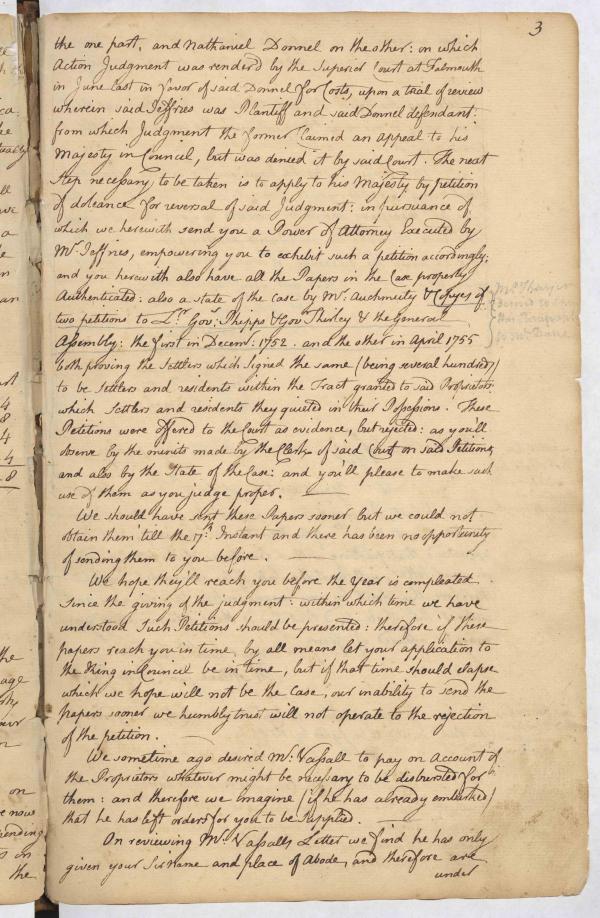 3
the one part, and Nathaniel Donnel on the other: on which
Action Judgment was renderd by the Superior Court at Falmouth
in June last in favor of said Donnel for Costs, upon a trial of review
wherein said Jeffries was Plantiff and said Donnel defendant:
from which Judgment the former Claimed an appeal to his
Majesty in Council, but was denied it by said Court. The next
Step necessary to be taken is to apply to his Majesty by petition
of doleance for reversal of said Judgment: in pursuance of
which we herewith send you a Power of Attorney Executed by
Mr. Jeffries, empowering you to exhibit such a petition accordingly;
and you herewith also have all the Papers in the Case properly
Authenticated: also a State of the case by Mr. Auchmuty & Copyes of
two petitions to Lt. Govr. Phipps & Govr. Shirley & the General
Assembly: the first in Decemr. 1752. and the other in April 1755
both proving the Settlers which signed the same (being several hundreds)
to be Settlers and residents within the Tract granted to said Proprietors
which Settlers and residents they quieted in their Possessions. These
Petitions were offered to the Court as evidence, but rejected: as you'll
observe by the minits made by the Clerk of said Court on said Petitions,
and also by the State of the Case: and you'll please to make such
use of them as you judge proper.
We should have sent these Papers sooner but we could not
obtain them till the 7th. Instant and there has been no opportunity
of sending them to you before.
We hope they'll reach you before the Year is compleated
since the giving of the judgment: within which time we have
understood Such Petitions should be presented: therefore if these
papers reach you in time, by all means let your application to
the King in Council be in time, but if that time should elapse
which we hope will not be the case, our inability to send the
papers sooner we humbly trust will not operate to the rejection
of the petition.
We sometime ago desired Mr. Vassall to pay on Account of
the Proprietors whatever might be necessary to be disbursted for
them: and therefore we imagine (if he has already embarked)
that he has left orders for you to be Supplied.
On reviewing Mr. Vassalls Letter we find he has only
given your Sirname and place of Abode, and therefore are
under